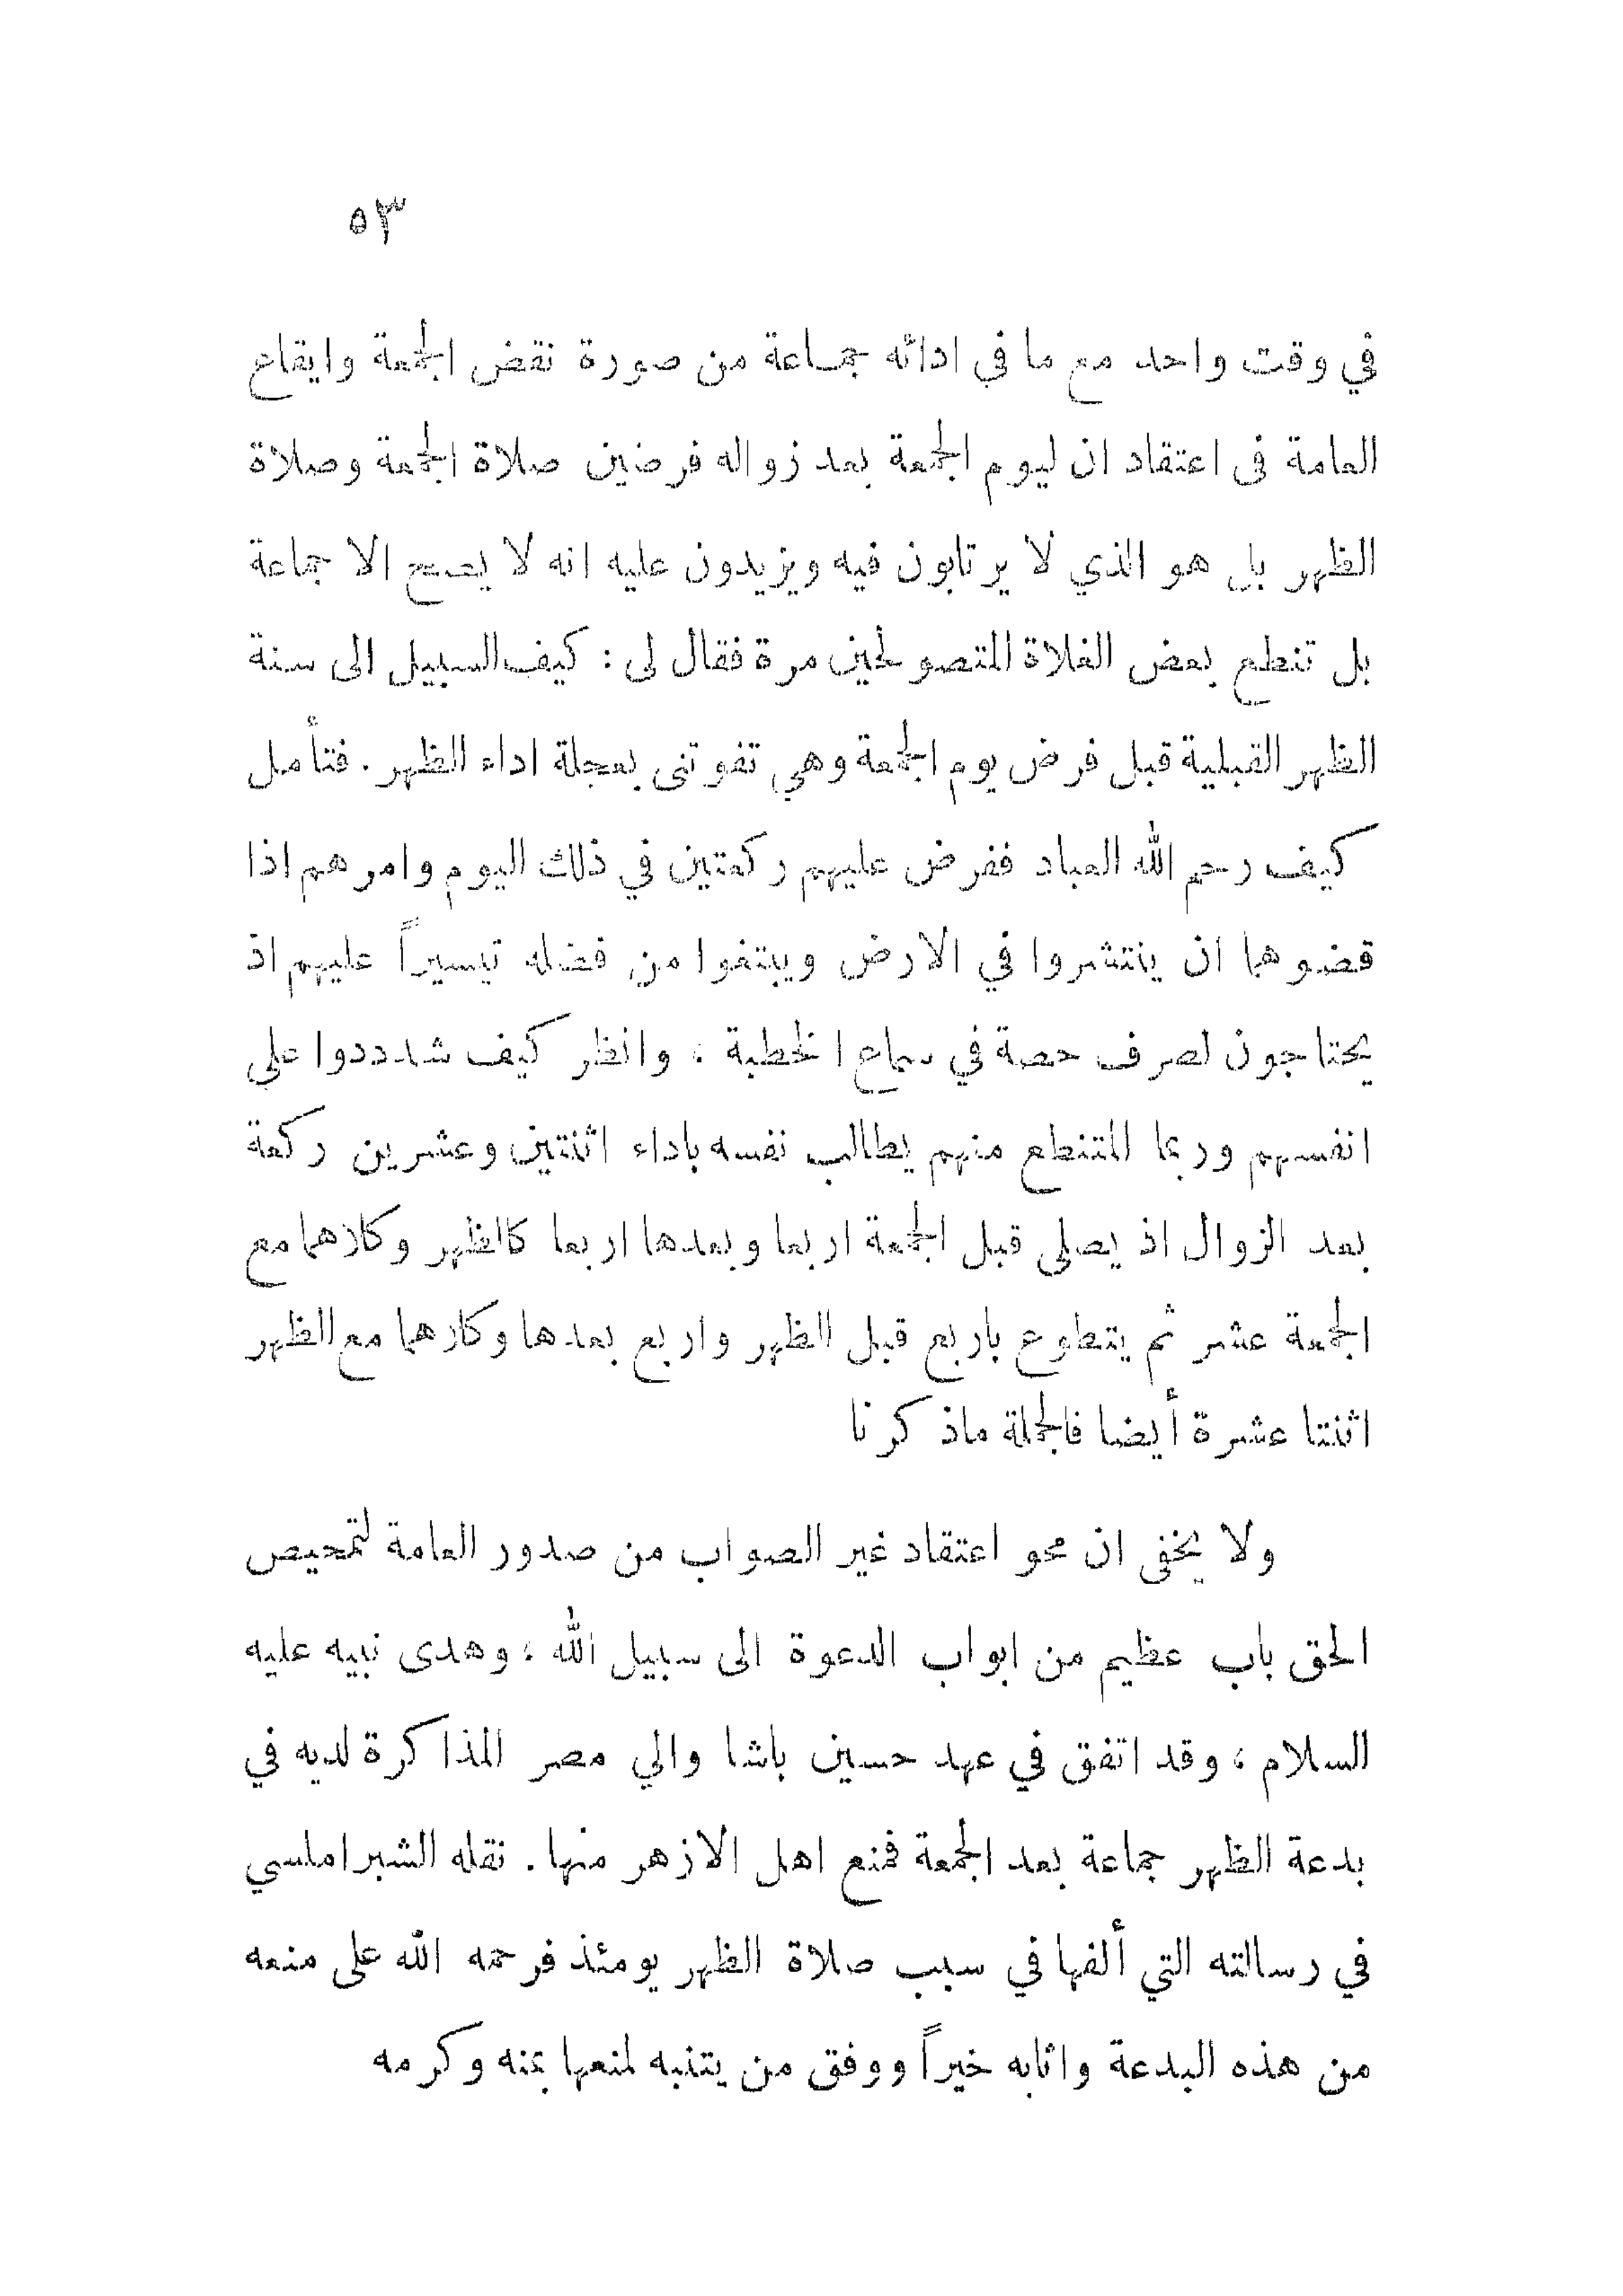 ٥٣
في وقت واحد مع ما في ادائه جماعة من صورة نقض الجمعة وايقاع
العامة في اعتقاد ان ليوم الجمعة بعد زواله فرضين صلاة الجمعة وصلاة
الظهر بل هو الذي لا يرتابون فيه ويزيدون عليه انه لا يصح الا جماعة
بل تنطع بعض الغلاة المتصولحين مرة فقال لى : كيف السبيل الى سنة
الظهر القبلية قبل فرض يوم الجمعة وهي تفوتنى بعجلة اداء الظهر . فتأمل
كيف رحم الله العباد ففرض عليهم ركعتين في ذلك اليوم وامرهم اذا
قضوها ان ينتشروا في الارض ويبتغوا من فضله تيسيراً عليهم اذ
يحتاجون لصرف حصة في سماع الخطبة ، وانظر كيف شددوا على
انفسهم وربما المتنطع منهم يطالب نفسه باداء اثنتين وعشرين ركعة
بعد الزوال اذ يصلى قبل الجمعة اربعا وبعدها اربعا كالظهر وكلاهما مع
الجمعة عشر ثم يتطوع باربع قبل الظهر واربع بعدها وكلاهما مع الظهر
اثنتا عشرة أيضا فالجملة ماذكرنا
ولا يخفى ان محو اعتقاد غير الصواب من صدور العامة لتمحيص
الحق باب عظيم من ابواب الدعوة الى سبيل الله ، وهدى نبيه عليه
السلام ، وقد اتفق في عهد حسين باشا والي مصر المذاكرة لديه في
بدعة الظهر جماعة بعد الجمعة فمنع اهل الازهر منها . نقله الشبراملسي
في رسالته التي ألفها في سبب صلاة الظهر يومئذ فرحمه الله على منعه
من هذه البدعة واثابه خيراً ووفق من يتنبه لمنعها بمنه وكرمه